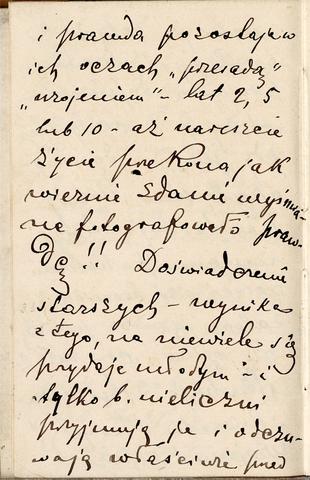 i prawda pozostaje w
ich oczach „przesadą”
„urojeniem” – lat 2, 5
lub 10 – aż nareszcie
życie przekona jak
wiernie zdanie wyśmia-
ne fotografowało praw-
dę !! Doświadczenie
starszych – wynika
z tego, na niewiele się
przydaje młodym – i
tylko b. nieliczni
przyjmują je i odczu-
wają właściwie przed